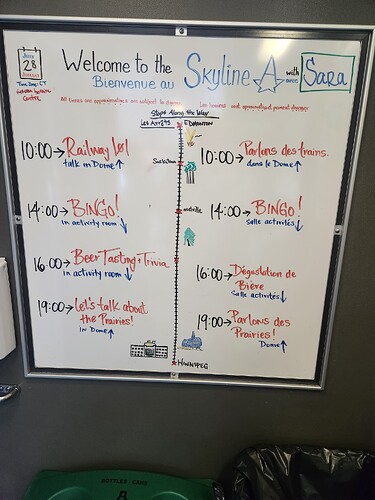 28
Welcome to the Skyline A with avec Sara
Bienvenue au
All times are approximate and subject to change
Les heures sont approximatives peuvent changer
Stops Along the Way
Les Arrêts
EDMONTON
10:00→Railway 101
talk in Dome↑
10:00→Parlons des trains.
dans le Dome↑
Saskatoon
14:00→BINGO!
in activity room↓
melville
14:00→BINGO!
salle activités↓
16:00→Beer Tasting+Trivia
in activity room↓
16:00→Dégustation de
Bière
Salle activités↓
19:00→Let's talk about
the Prairies!
in Dome↑
19:00→Parlons des
Prairies!
Dome↑
WINNIPEG
BOTTLES-CANS